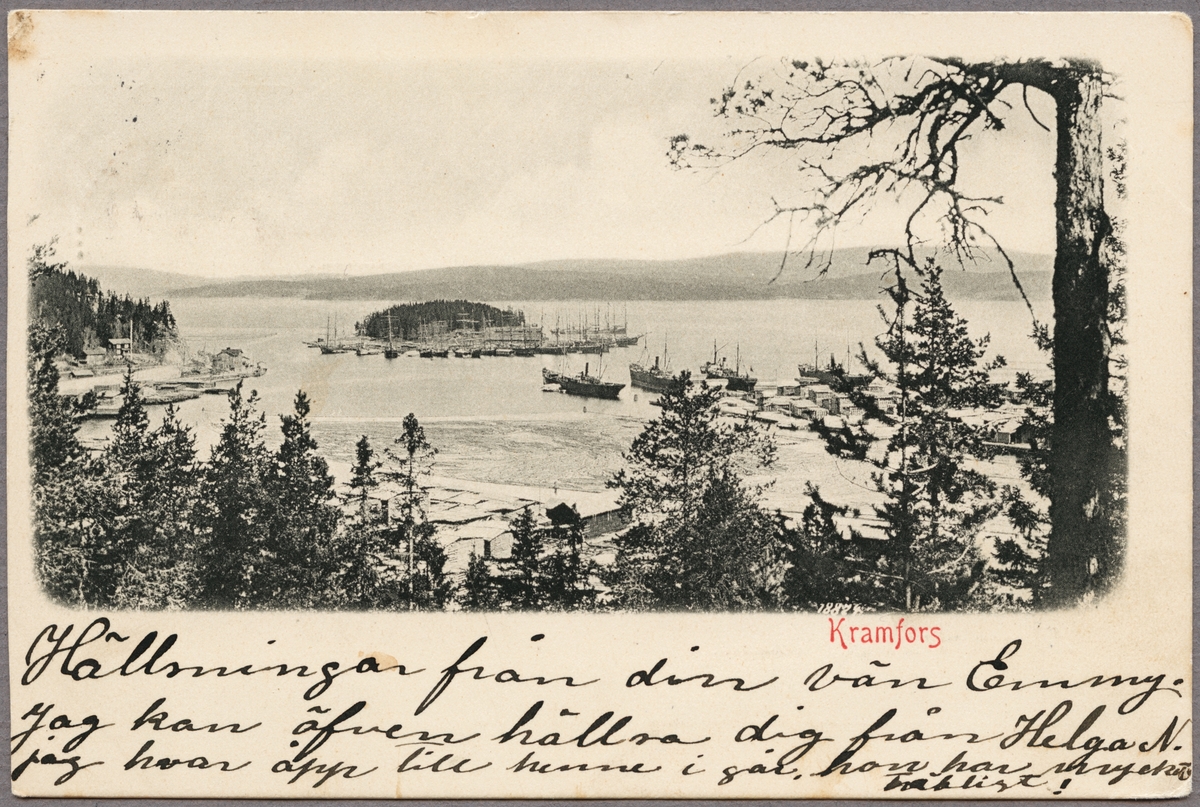 Kramfors
Hällsningar från din vän Emmy.
Jag kan äfven hällsa dig från Helga N.
jag hvar öpp till henne i går, hon har mycket
träkligt!